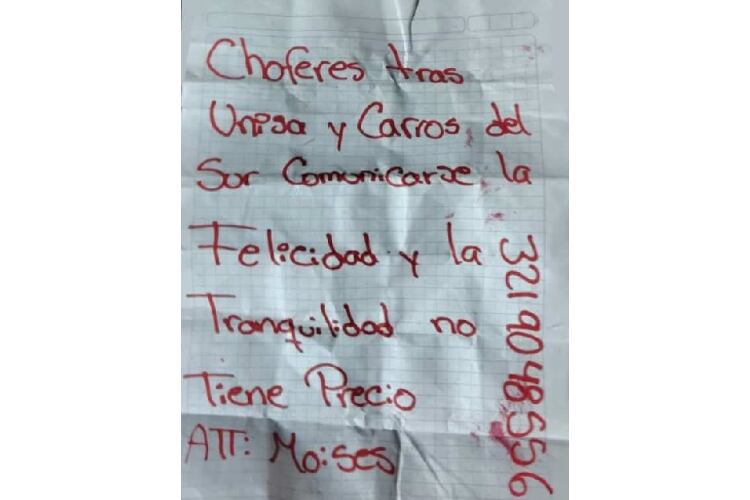 Choferes tras
Unisa y Carros del
Sur Comunicarse la
Felicidad y la
Tranquilidad no
Tiene Precio
ATT: Moises
3219048556